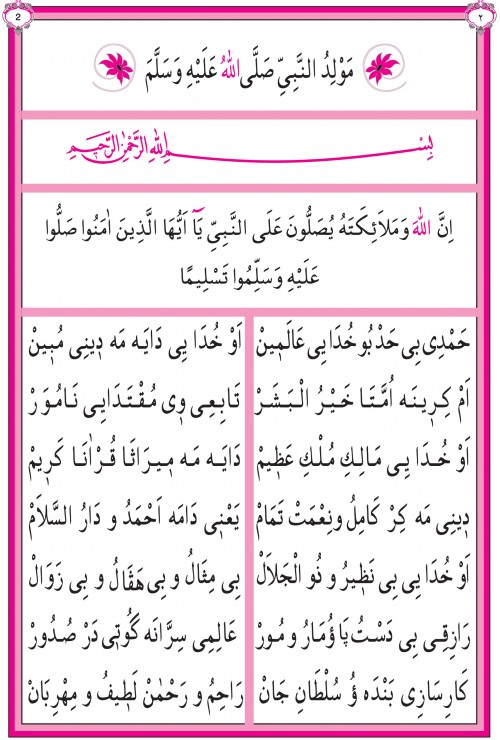 2
٢
مَوْلِدُ النَّبِيِّ صَلَّى اللهُ عَلَيْهِ وَسَلَّمَ
بِسْمِ اللهِ الرَّحْمٰنِ الرَّحِيمِ
اِنَّ اللهَ وَمَلَائِكَتَهُ يُصَلُّونَ عَلَى النَّبِيِّ يَٓا اَيُّهَا الَّذِينَ اٰمَنُوا صَلُّوا
عَلَيْهِ وَسَلِّمُوا تَسْلِيمًا
حَمْدِى بِى حَدْ بُو خُدَايِى عَالَمِينْ اَوْ خُدَا يِى دَايَه مَه دِينِى مُبِينْ
اَمْ كِرِينَه اُمَّتَا خَيْرُ الْبَشَرْ تَابِعِى وِى مُقْتَدَايِى نَامُوَرْ
اَوْ خُدَا يِى مَالِكِ مُلْكِ عَظِيمْ دَايَه مَه مِيرَاثَا قُرْاٰنَا كَرِيمْ
دِينِى مَه كِرْ كَامِلُ و نِعْمَتْ تَمَامْ يَعْنِى دَامَه اَحْمَدُ و دَارُ السَّلَامْ
اَوْ خُدَا يِى بِى نَظِيرُ و ذُو الْجَلَالْ بِى مِثَالُ و بِى هَڤَالُ و بِى زَوَالْ
رَازِقِى بِى دَسْتُ پَا ؤُمَارُ و مُورْ عَالِمِى سِرَّانَه گُوتِى دَرْ صُدُورْ
كَارِسَازِى بَنْدَه ؤُ سُلْطَانِ جَانْ رَاحِمُ و رَحْمٰنْ لَطِيفُ و مِهْرِبَانْ